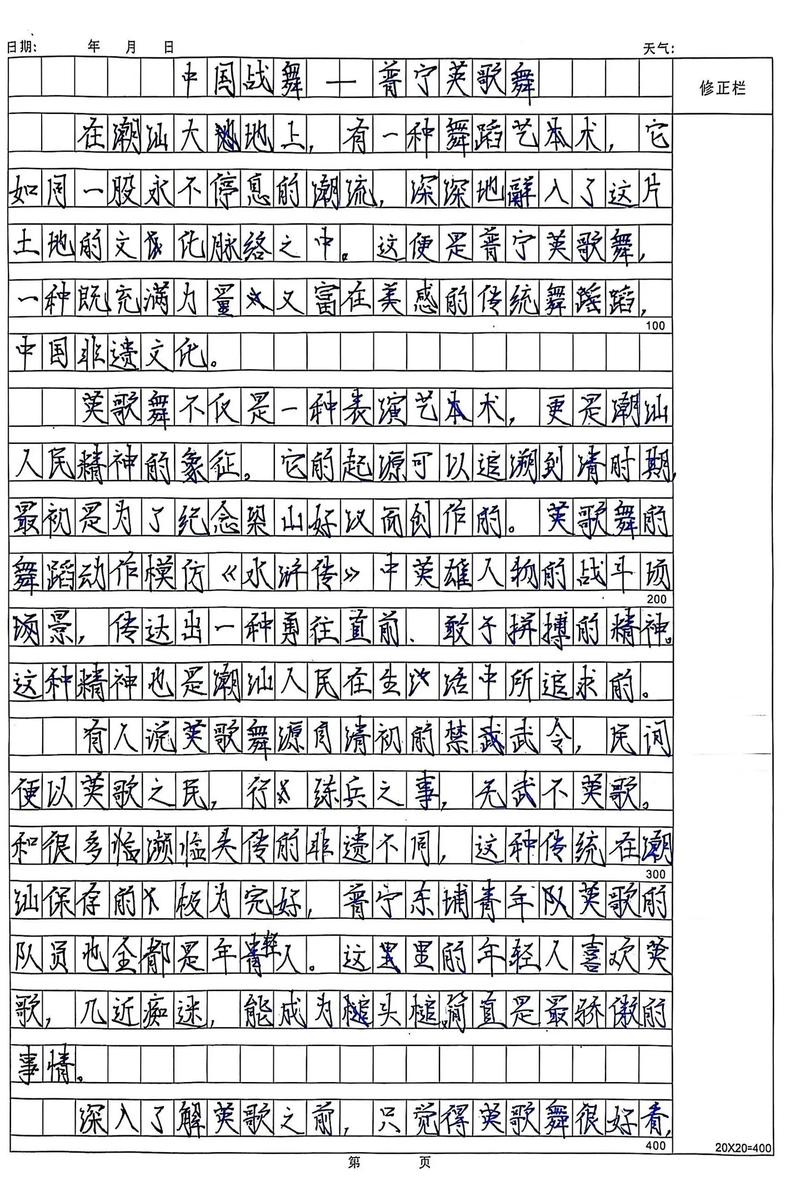 日期: 年 月 日 天气:
中国战舞—普宁英歌舞
修正栏
在潮汕大地上，有一种舞蹈艺术，它
如同一股永不停息的潮流，深深地融入了这片
土地的文化脉络之中。这便是普宁英歌舞，
一种既充满力量又富在美感的传统舞蹈，
100
中国非遗文化。
英歌舞不仅是一种表演艺术，更是潮汕
人民精神的象征。它的起源可以追溯到清时期，
最初是为了纪念梁山好汉而创作的。英歌舞的
舞蹈动作模仿《水浒传》中英雄人物的战斗
200
场景，传达出一种勇往直前、敢于拼搏的精神。
这种精神也是潮汕人民在生活中所追求的。
有人说英歌舞源自清初的禁武令，民间
便以英歌之民，行练兵之事，无武不英歌。
和很多濒临失传的非遗不同，这种传统在潮
300
汕保存的极为完好，普宁东埔青年队英歌的
队员也全都是年轻人。这里的年轻人喜欢英
歌，几近痴迷，能成为头槌简直是最骄傲的
事情。
深入了解英歌之前，只觉得英歌舞很好看，
400
20X20=400
第 页